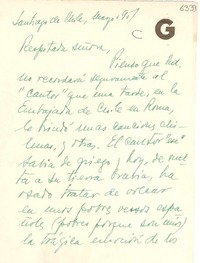 6331
Santiago de Chile, Mayo 951
C G
Respetada señora,
Pienso que Ud.
no recordará seguramente al
"cantor" que una tarde, en la
Embajada de Chile en Roma,
le brindó unas canciones chi-
lenas, y otras. El cantor
sabía de griego y hoy, de
a su tierra, ha
osado tratar de volcar
en unos pobres versos espa-
ñoles (pobres porque son míos)
la trágica emoción de los